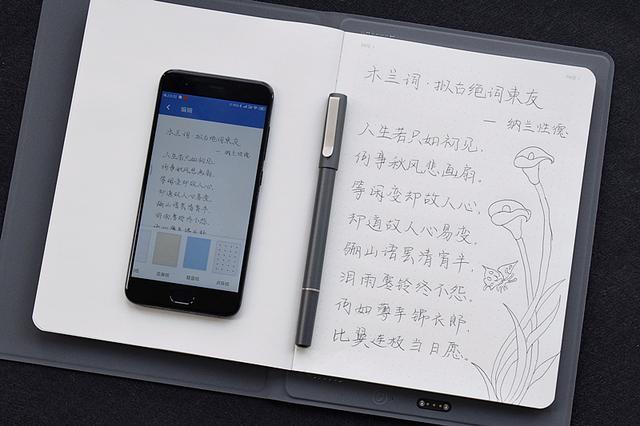 编辑
木兰词·拟古绝词柬友
— 纳兰性德
人生若只如初见
何事秋风悲画扇
等闲变却故人心
却道故人心易变
骊山语罢清宵半
泪雨零铃终不怨
木兰词·拟古绝词柬友
— 纳兰性德
人生若只如初见,
何事秋风悲画扇。
等闲变却故人心,
却道故人心易变。
骊山语罢清宵半,
泪雨零铃终不怨。
何如薄幸锦衣郎,
比翼连枝当日愿。